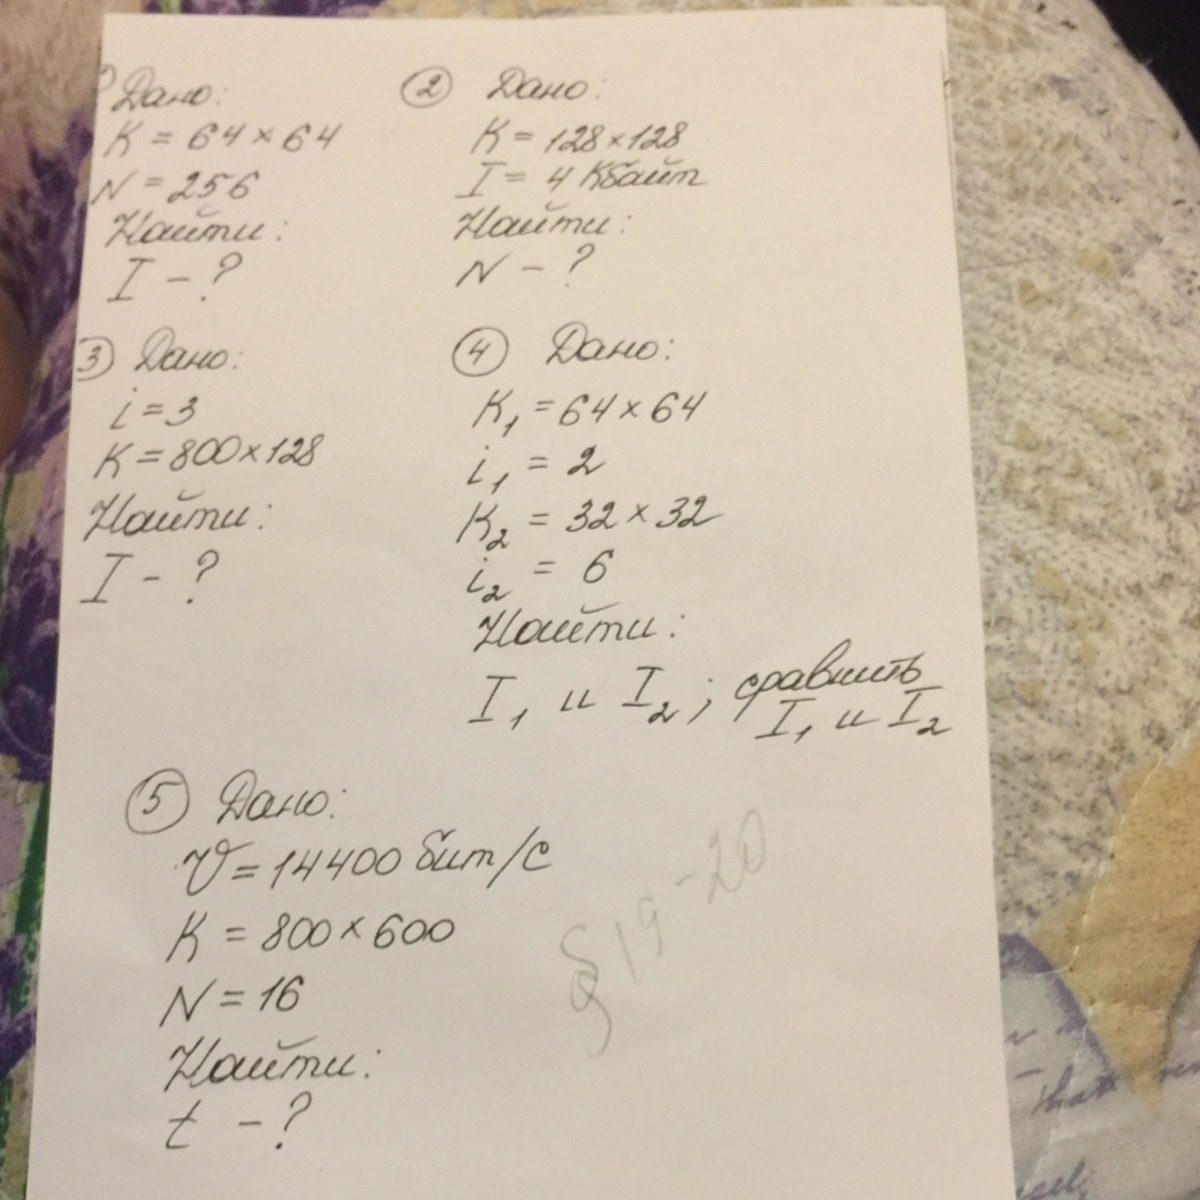 Дано:
K = 64 × 64
N = 256
Найти:
I - ?
② Дано:
K = 128 × 128
I = 4 Кбайт
Найти:
N - ?
③ Дано:
i = 3
K = 800 × 128
Найти:
I - ?
④ Дано:
K₁ = 64 × 64
i₁ = 2
K₂ = 32 × 32
i₂ = 6
Найти:
I₁ и I₂; сравнить
I₁ и I₂
⑤ Дано:
V = 14400 бит/с
K = 800 × 600
N = 16
Найти:
t - ?
§ 19-20